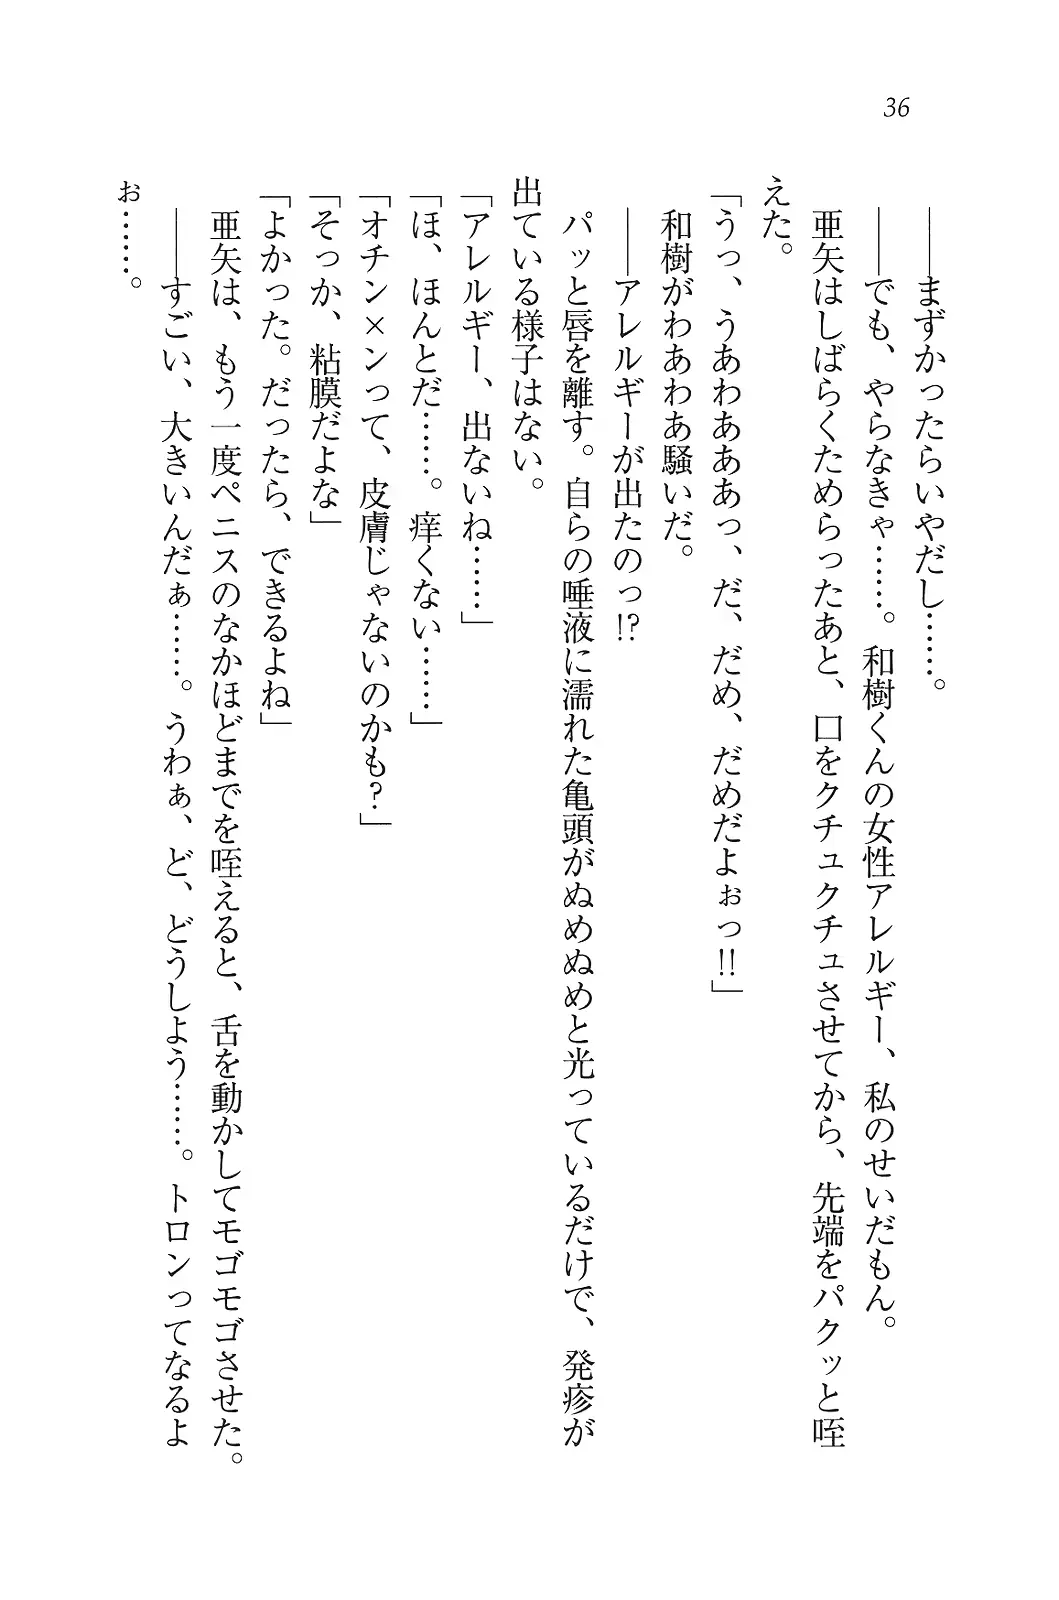 36
――まずかったらいやだし……。
――でも、やらなきゃ……。和樹くんの女性アレルギー、私のせいだもん。
亜矢はしばらくためらったあと、口をクチュクチュさせてから、先端をパクッと咥
えた。
「うっ、うあわあああっ、だ、だめ、だめだよぉっ!!」
和樹がわあわあ騒いだ。
――アレルギーが出たのっ!?
パッと唇を離す。自らの唾液に濡れた亀頭がぬめぬめと光っているだけで、発疹が
出ている様子はない。
「アレルギー、出ないね……」
「ほ、ほんとだ……。痒くない……」
「オチン×ンって、皮膚じゃないのかも?」
「そっか、粘膜だよな」
「よかった。だったら、できるよね」
亜矢は、もう一度ペニスのなかほどまでを咥えると、舌を動かしてモゴモゴさせた。
――すごい、大きいんだぁ……。うわぁ、ど、どうしよう……。トロンってなるよ
ぉ……。